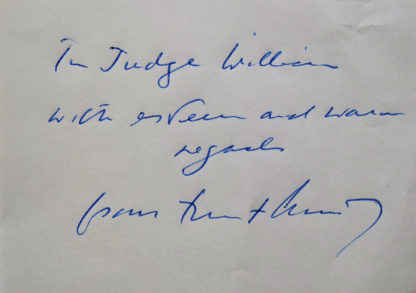 To Judge William
with esteem and warm
regards
from